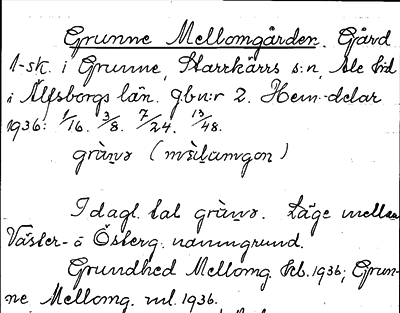 Grunne Mellomgården. Gård
1-sk. i Grunne, Starrkärrs s:n, Ale hd
i Älfsborgs län. gbn:r 2. Hem.-delar
1936: 1/16. 3/8. 7/24. 13/48.
grànꝛ (mɛ̀lamgon)
I dagl. tal grànꝛ. Läge mellan
Väster- o Österg. namngrund.
Grundhed Mellomg. kb. 1936; Grun-
ne Mellomg. ml. 1936.